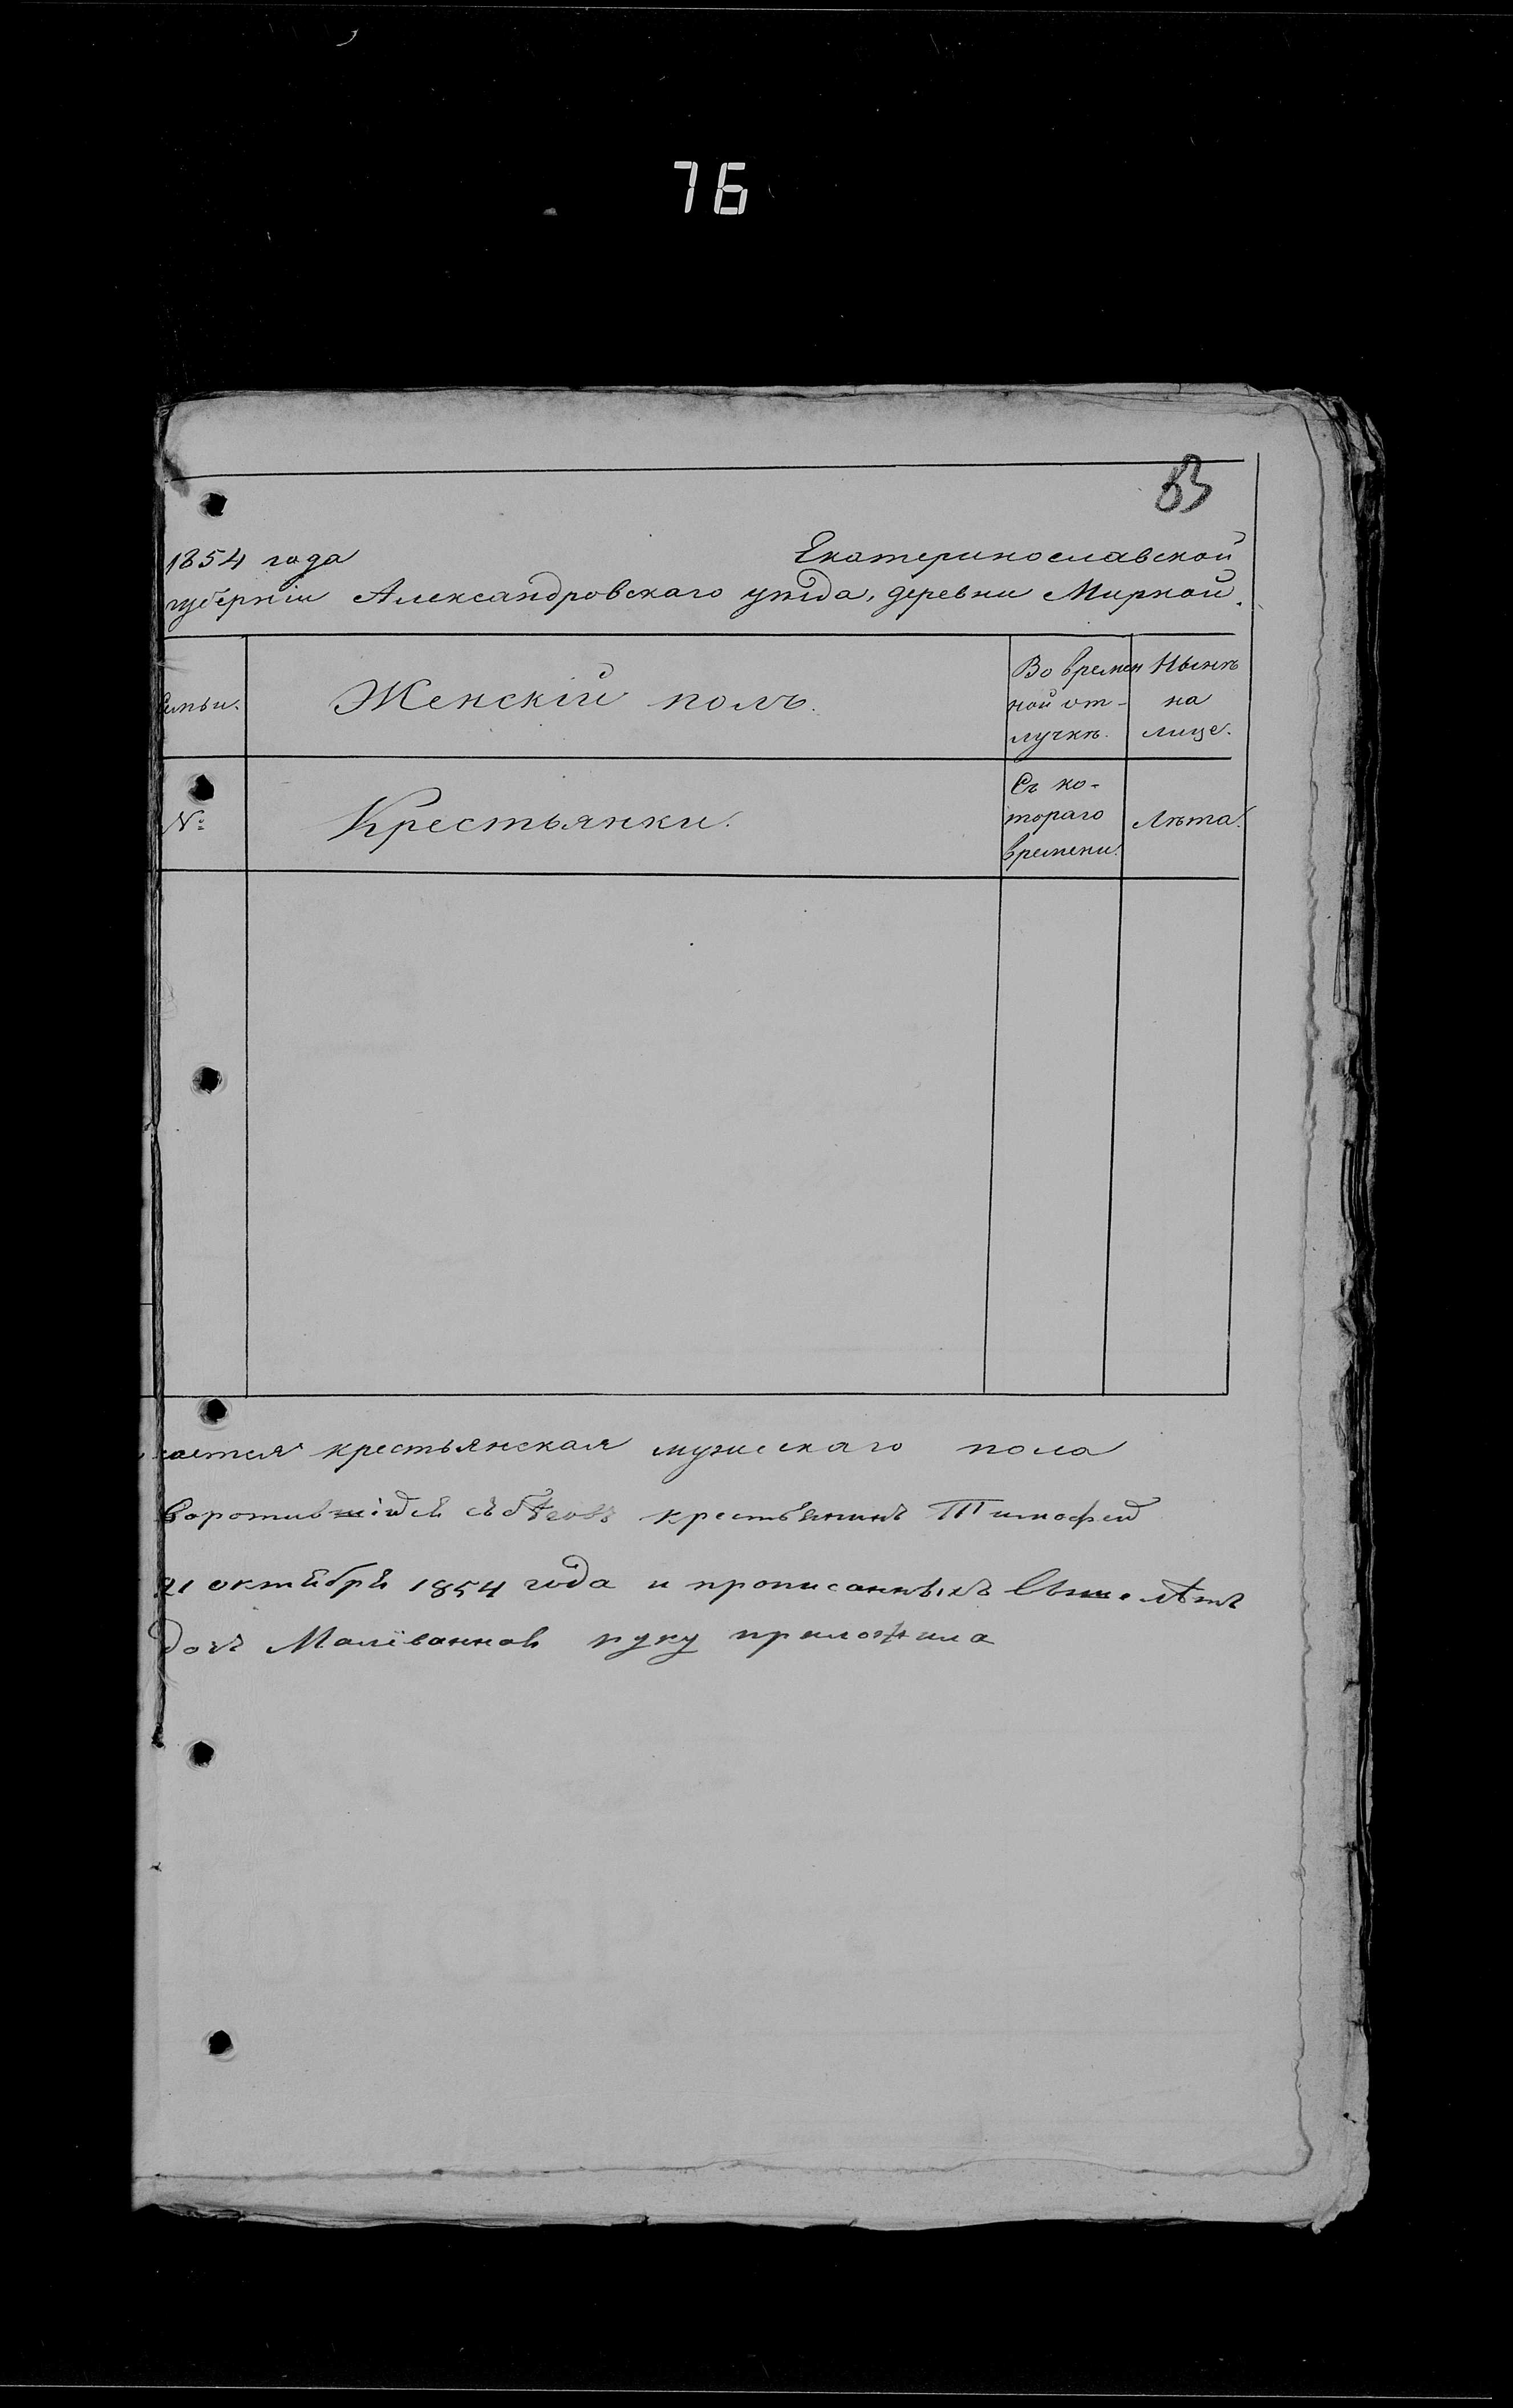 76
83
1854 года Екатеринославской
губерніи Александровскаго уѣзда, деревни Мирной.
Женскій полъ.
Во времен
ной от-
лучкѣ.
Нынѣ
на
лице.
№
Крестьянки.
Съ ко-
тораго
времени.
Лѣта.
крестьянская мужескаго пола
воротившійся съ бѣговъ крестьянинъ Тимофей
21 октября 1854 года и прописанныхъ выше лѣтъ
руку приложила